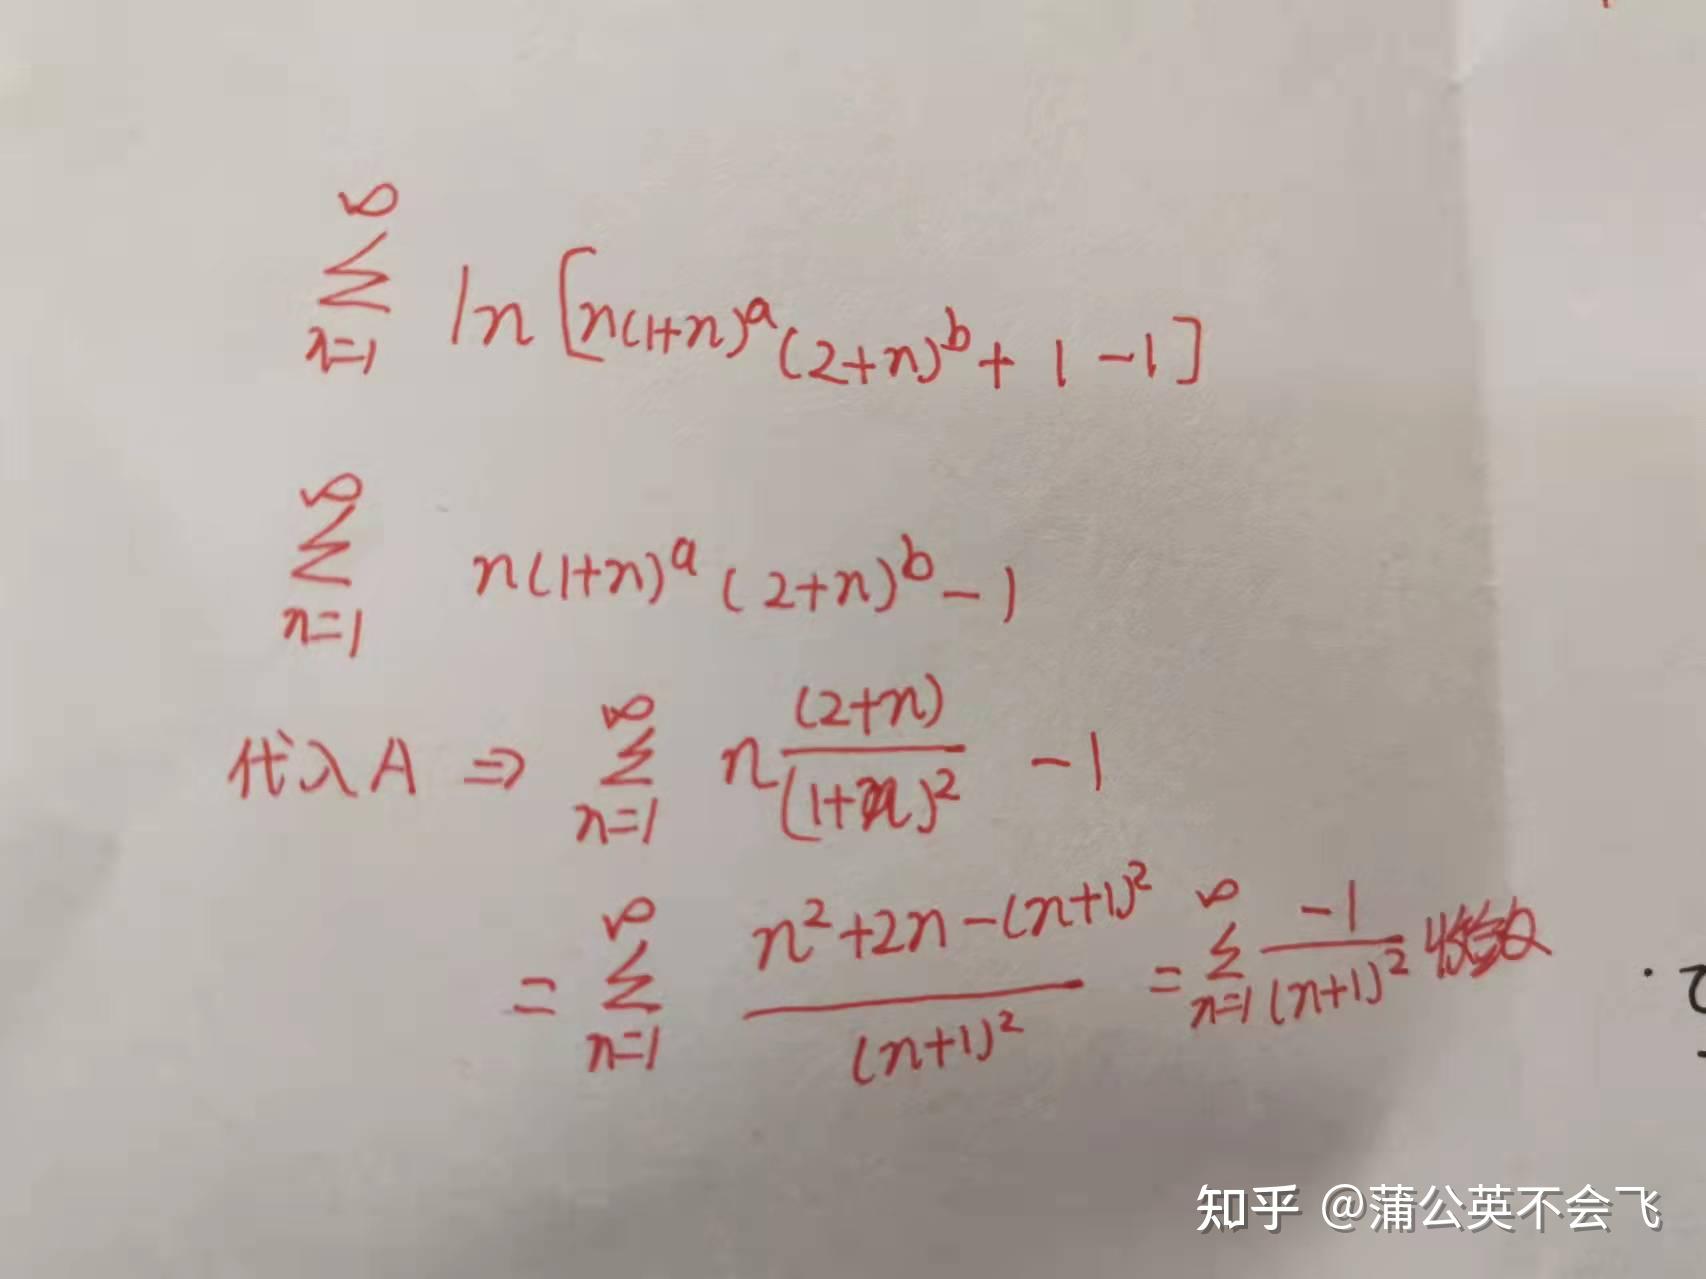 ∞
∑ ln[n(1+n)^a (2+n)^b + 1 - 1]
n=1
∞
∑ n(1+n)^a (2+n)^b - 1
n=1
代入A ⇒ ∑_{n=1}^{∞} n (2+n)/(1+n)^2 - 1
= ∑_{n=1}^{∞} (n^2+2n-(n+1)^2)/(n+1)^2 = ∑_{n=1}^{∞} -1/(n+1)^2 收敛
知乎 @蒲公英不会飞